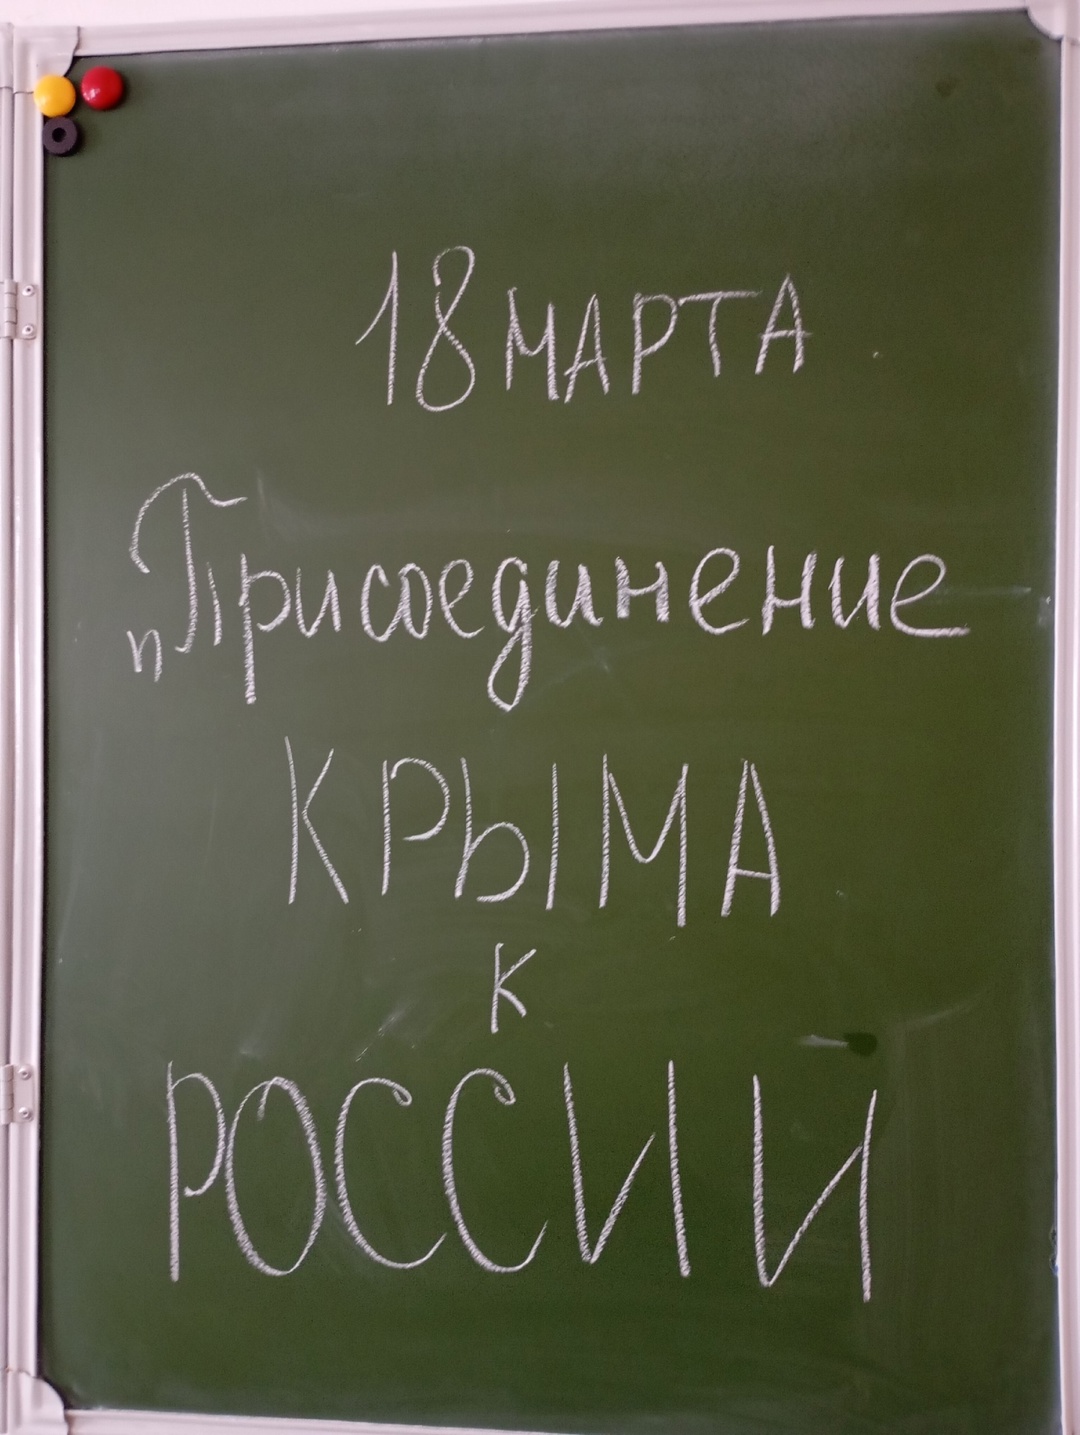 18 МАРТА
"Присоединение
КРЫМА
К
РОССИИ